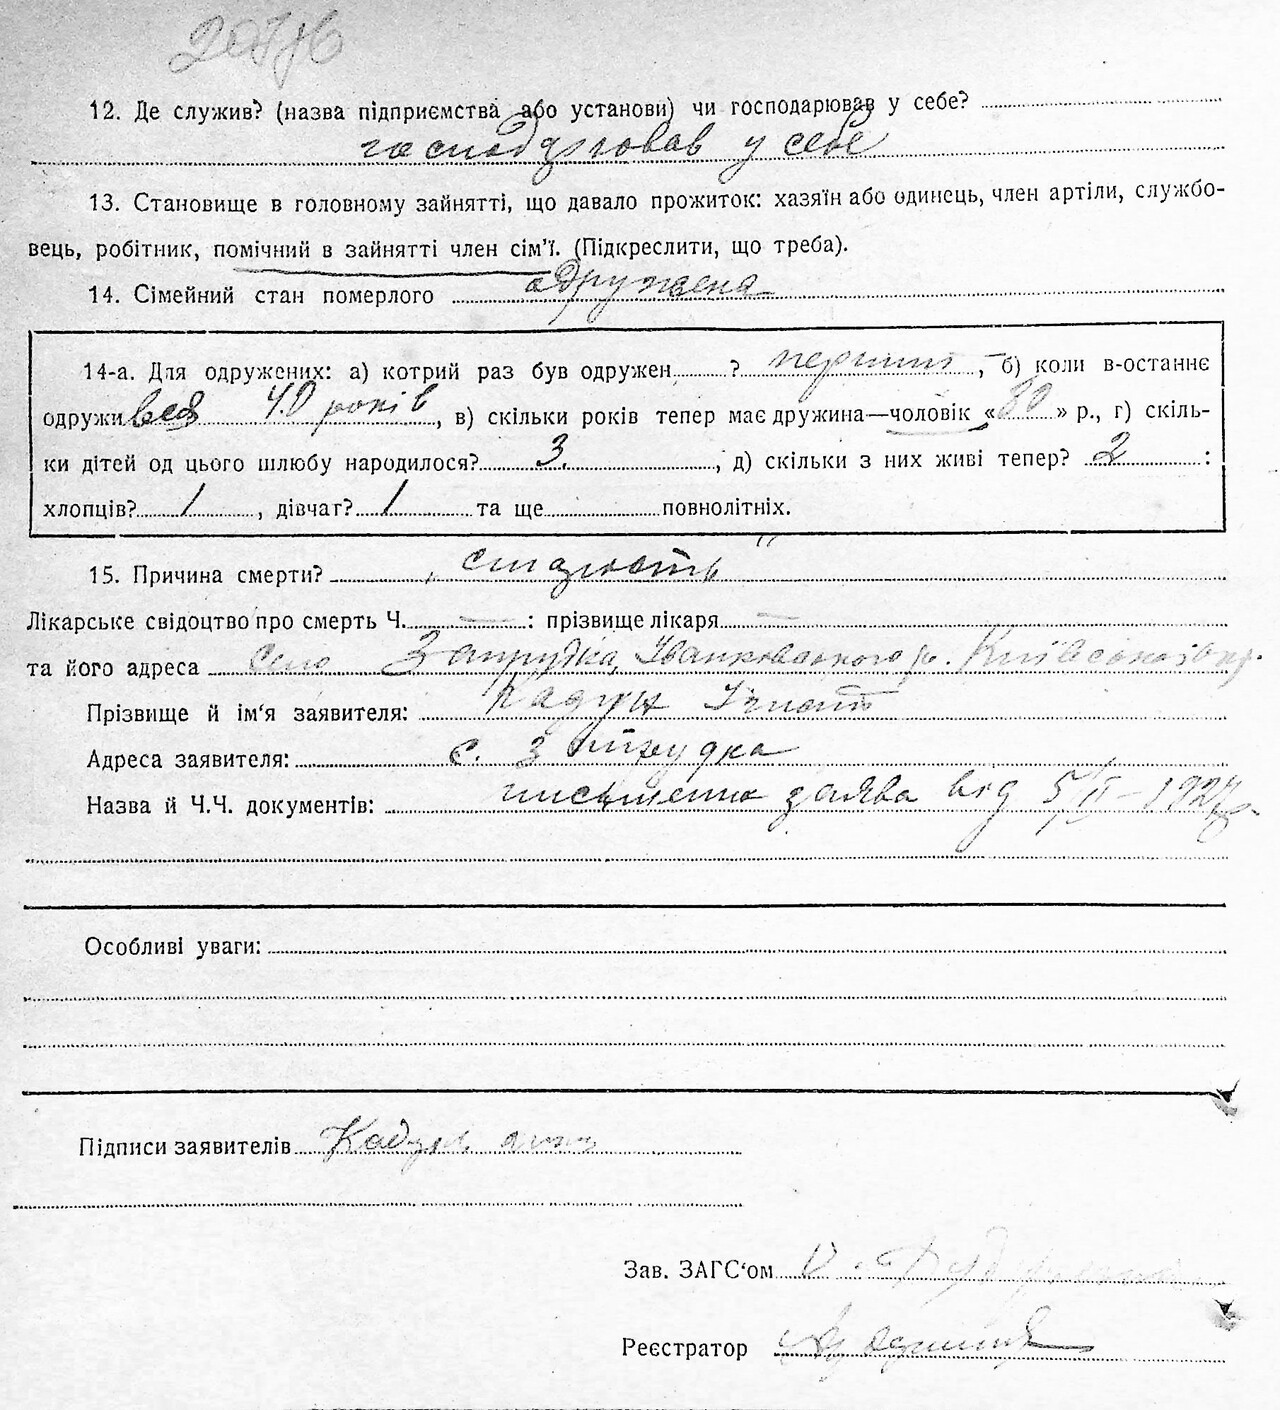 12. Де служив? (назва підприємства або установи) чи господарював у себе?
господарював у себе
13. Становище в головному зайнятті, що давало прожиток: хазяїн або одинець, член артіли, службо-
вець, робітник, помічний в зайнятті член сім'ї. (Підкреслити, що треба).
14. Сімейний стан померлого одружена
14-а. Для одружених: а) котрий раз був одружен ? перший, б) коли в-останнє
одружився 40 років, в) скільки років тепер має дружина—чоловік «80» р., г) скіль-
ки дітей од цього шлюбу народилося? 3, д) скільки з них живі тепер? 2 :
хлопців? 1, дівчат? 1 та ще повнолітніх.
15. Причина смерти? „старість"
Лікарське свідоцтво про смерть Ч. — : прізвище лікаря —
та його адреса село Запрудка, Іванківського р. Київської окр.
Прізвище й ім'я заявителя: Кадун Ігнат
Адреса заявителя: с. Запрудка
Назва й Ч.Ч. документів: письменна заява від 5/II–1927
Особливі уваги:
Підписи заявителів Кадун
Зав. ЗАГС'ом
Реєстратор